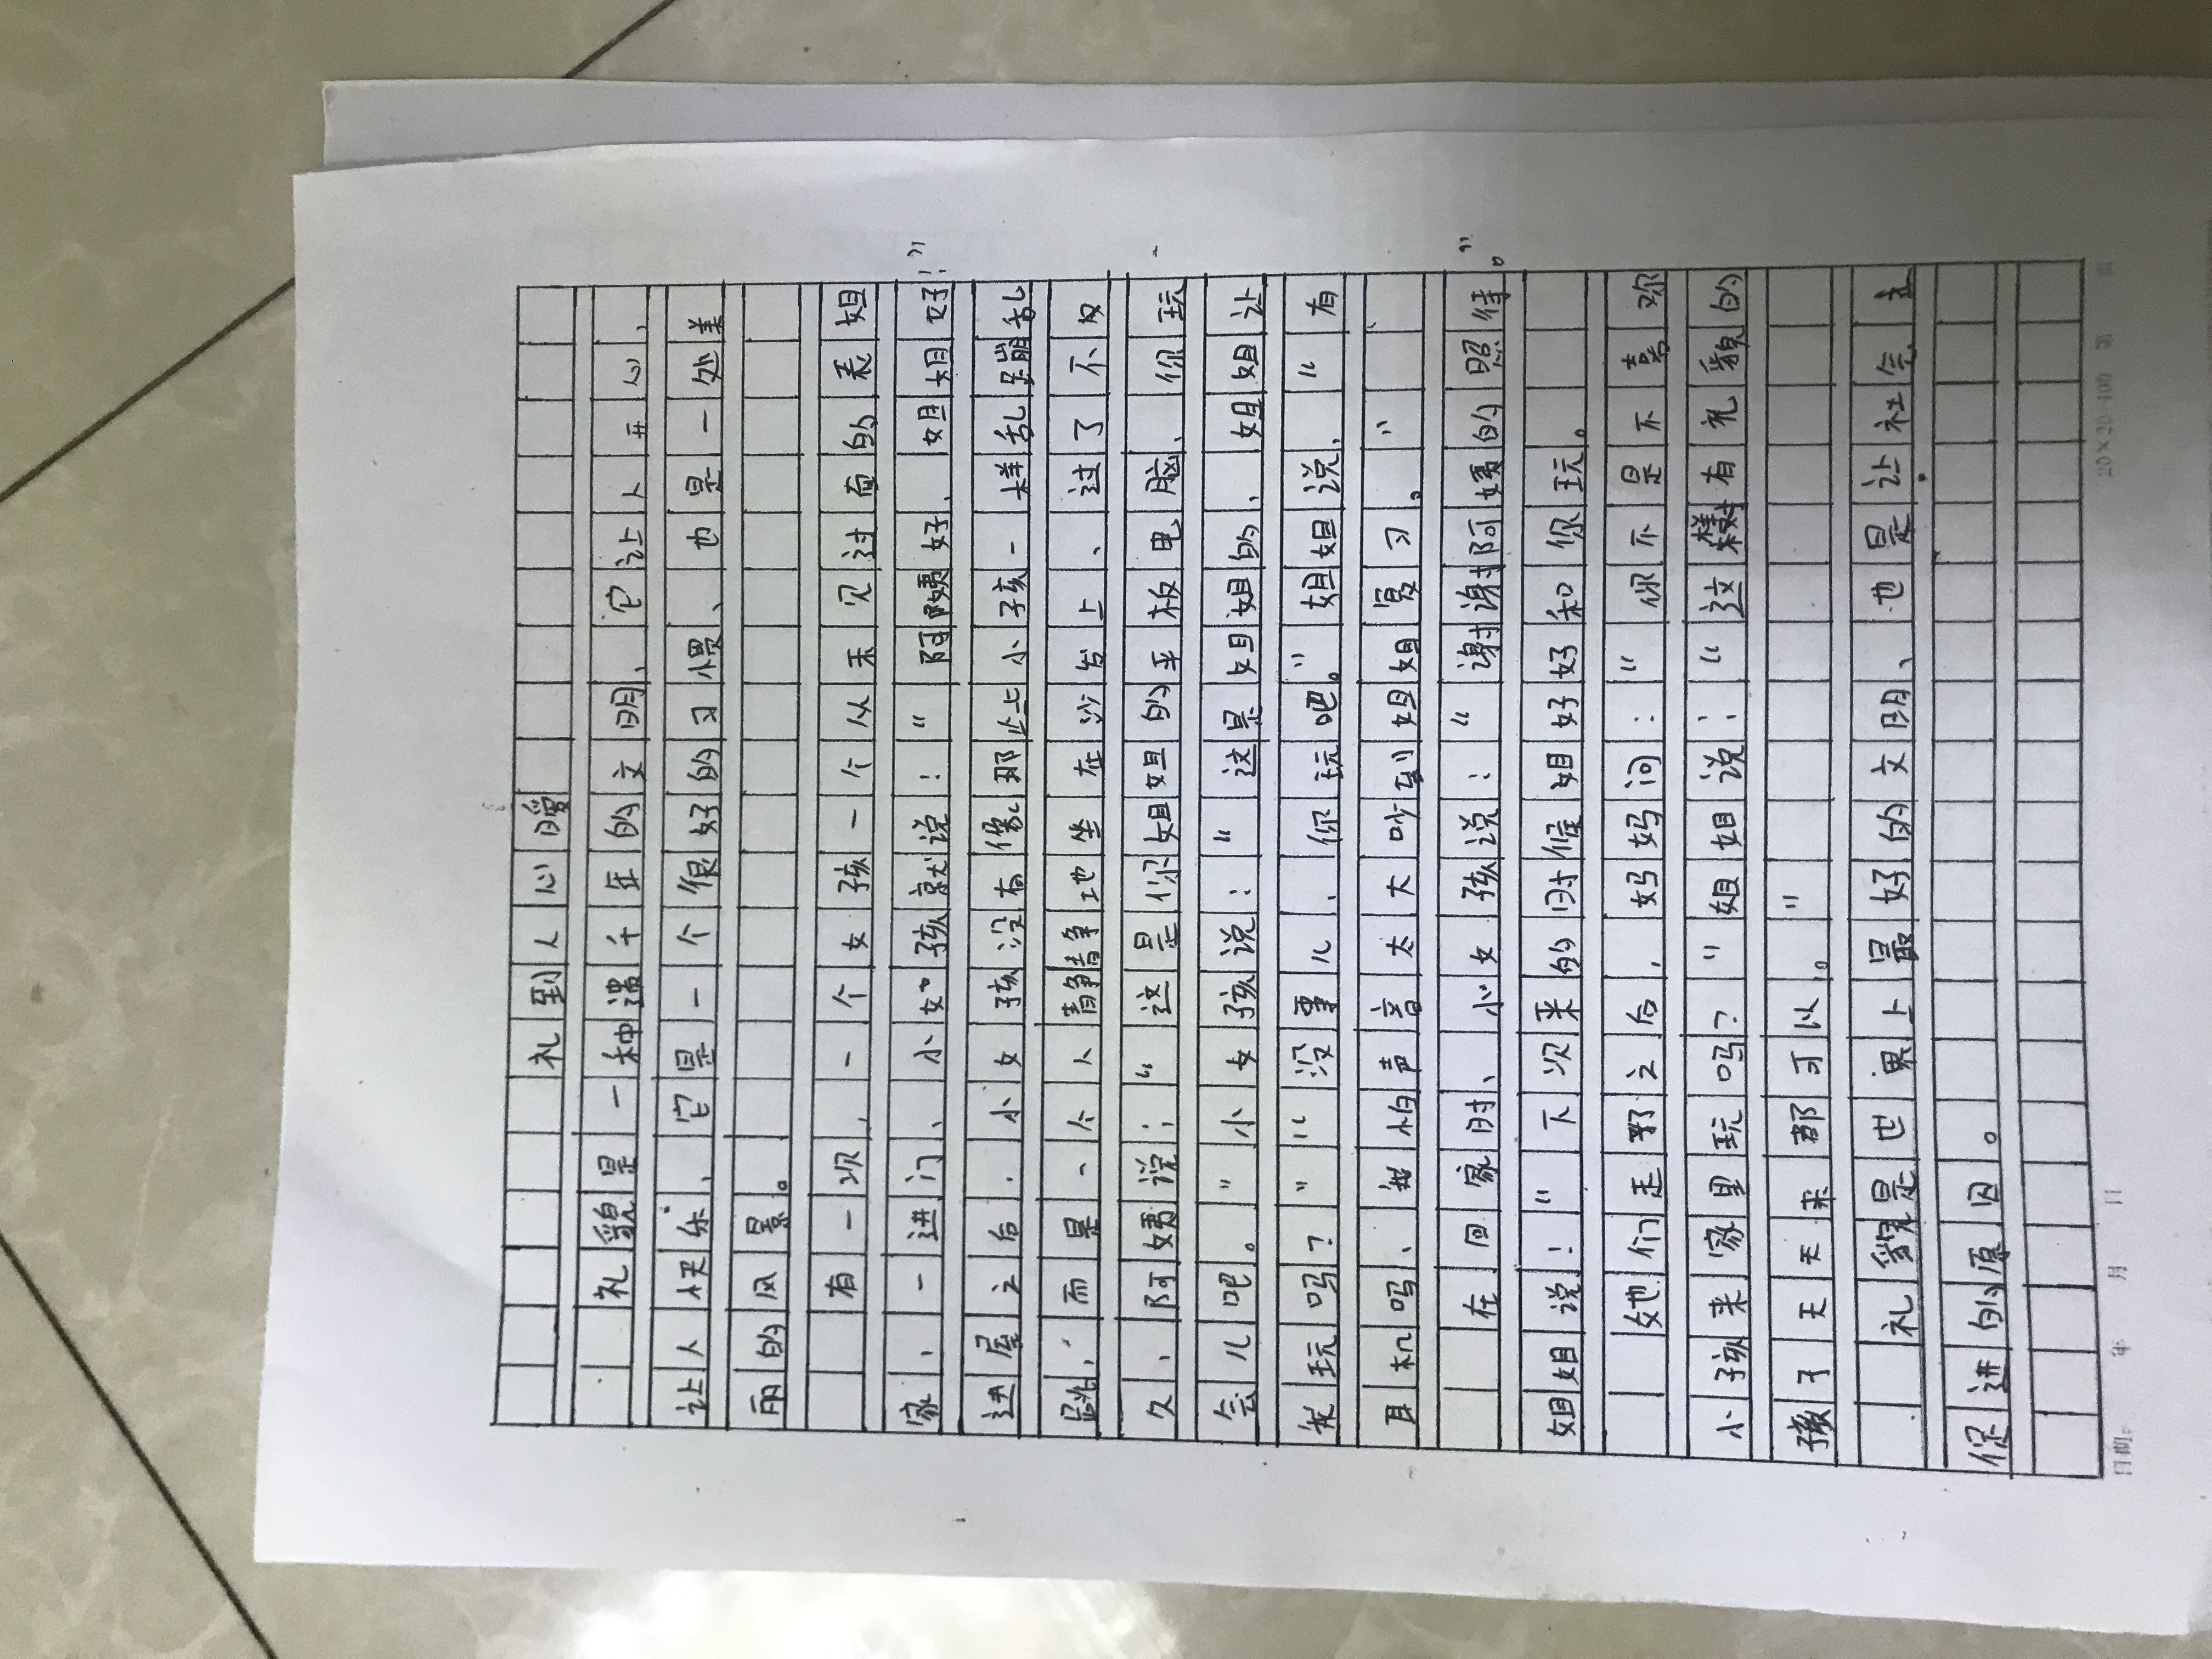 礼到人心暖
礼貌是一种遗千年的文明、它让人开心、
让人快乐、它是一个很好的习惯、也是一处美
丽的风景。
有一次,一个女孩一个从未见过面的表姐
家、一进门、小女孩就说:“阿姨好、姐姐好!”
进屋之后.小女孩没有像那些小孩一样乱蹦乱
跳,而是一个人静静地坐在沙发上、过了不
久、阿姨说:“这是你姐姐的平板电脑、你玩
会儿吧。”小女孩说:“这是姐姐的、姐姐让
我玩吗?”“没事儿、你玩吧。”姐姐说,“有
耳机吗、我怕声音太大吵到姐姐复习。”
在回家时、小女孩说:“谢谢阿姨的照待。”
姐姐说:“下次来的时候姐好好和你玩。
她们走了之后,妈妈问:“你不是不喜欢
小孩来家里玩吗?”姐姐说:“这样有礼貌的
孩子天天来都可以。”
礼貌是世界上最好的文明、也是让社会
促进的原因。
日期: 年 月 日
20×20=400 第 页